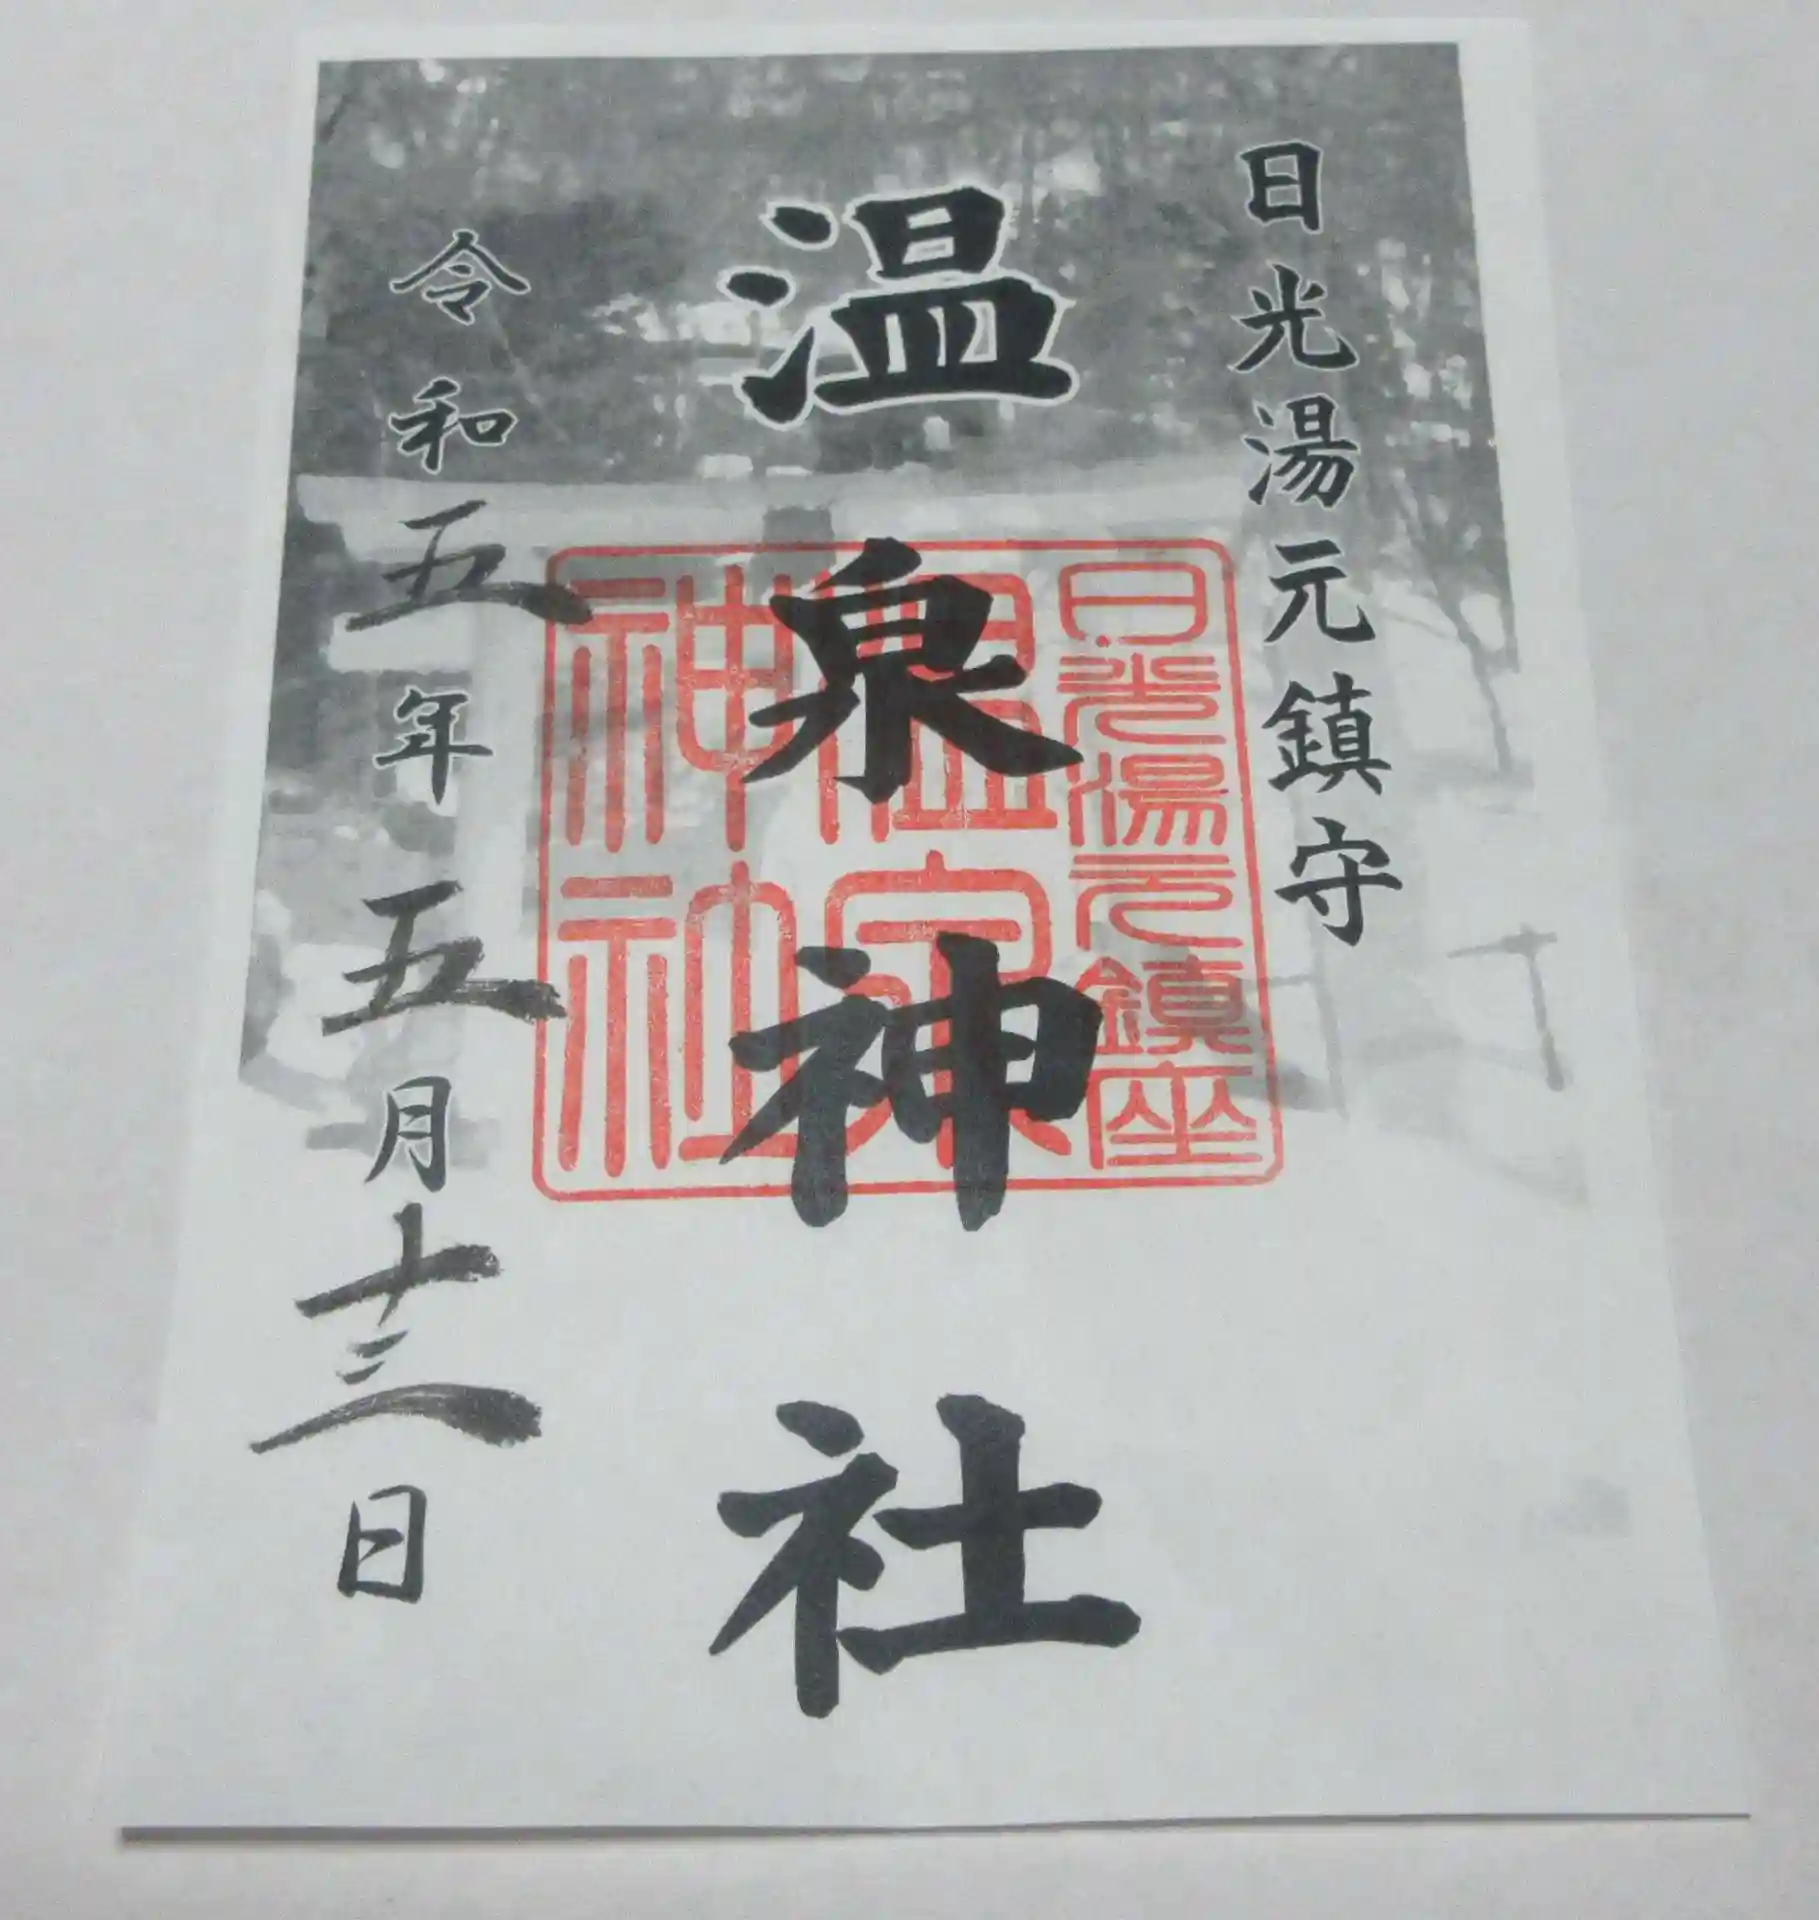 日光湯元鎮守
温泉神社
日光湯元鎮座
温泉
神社
令和五年五月十三日